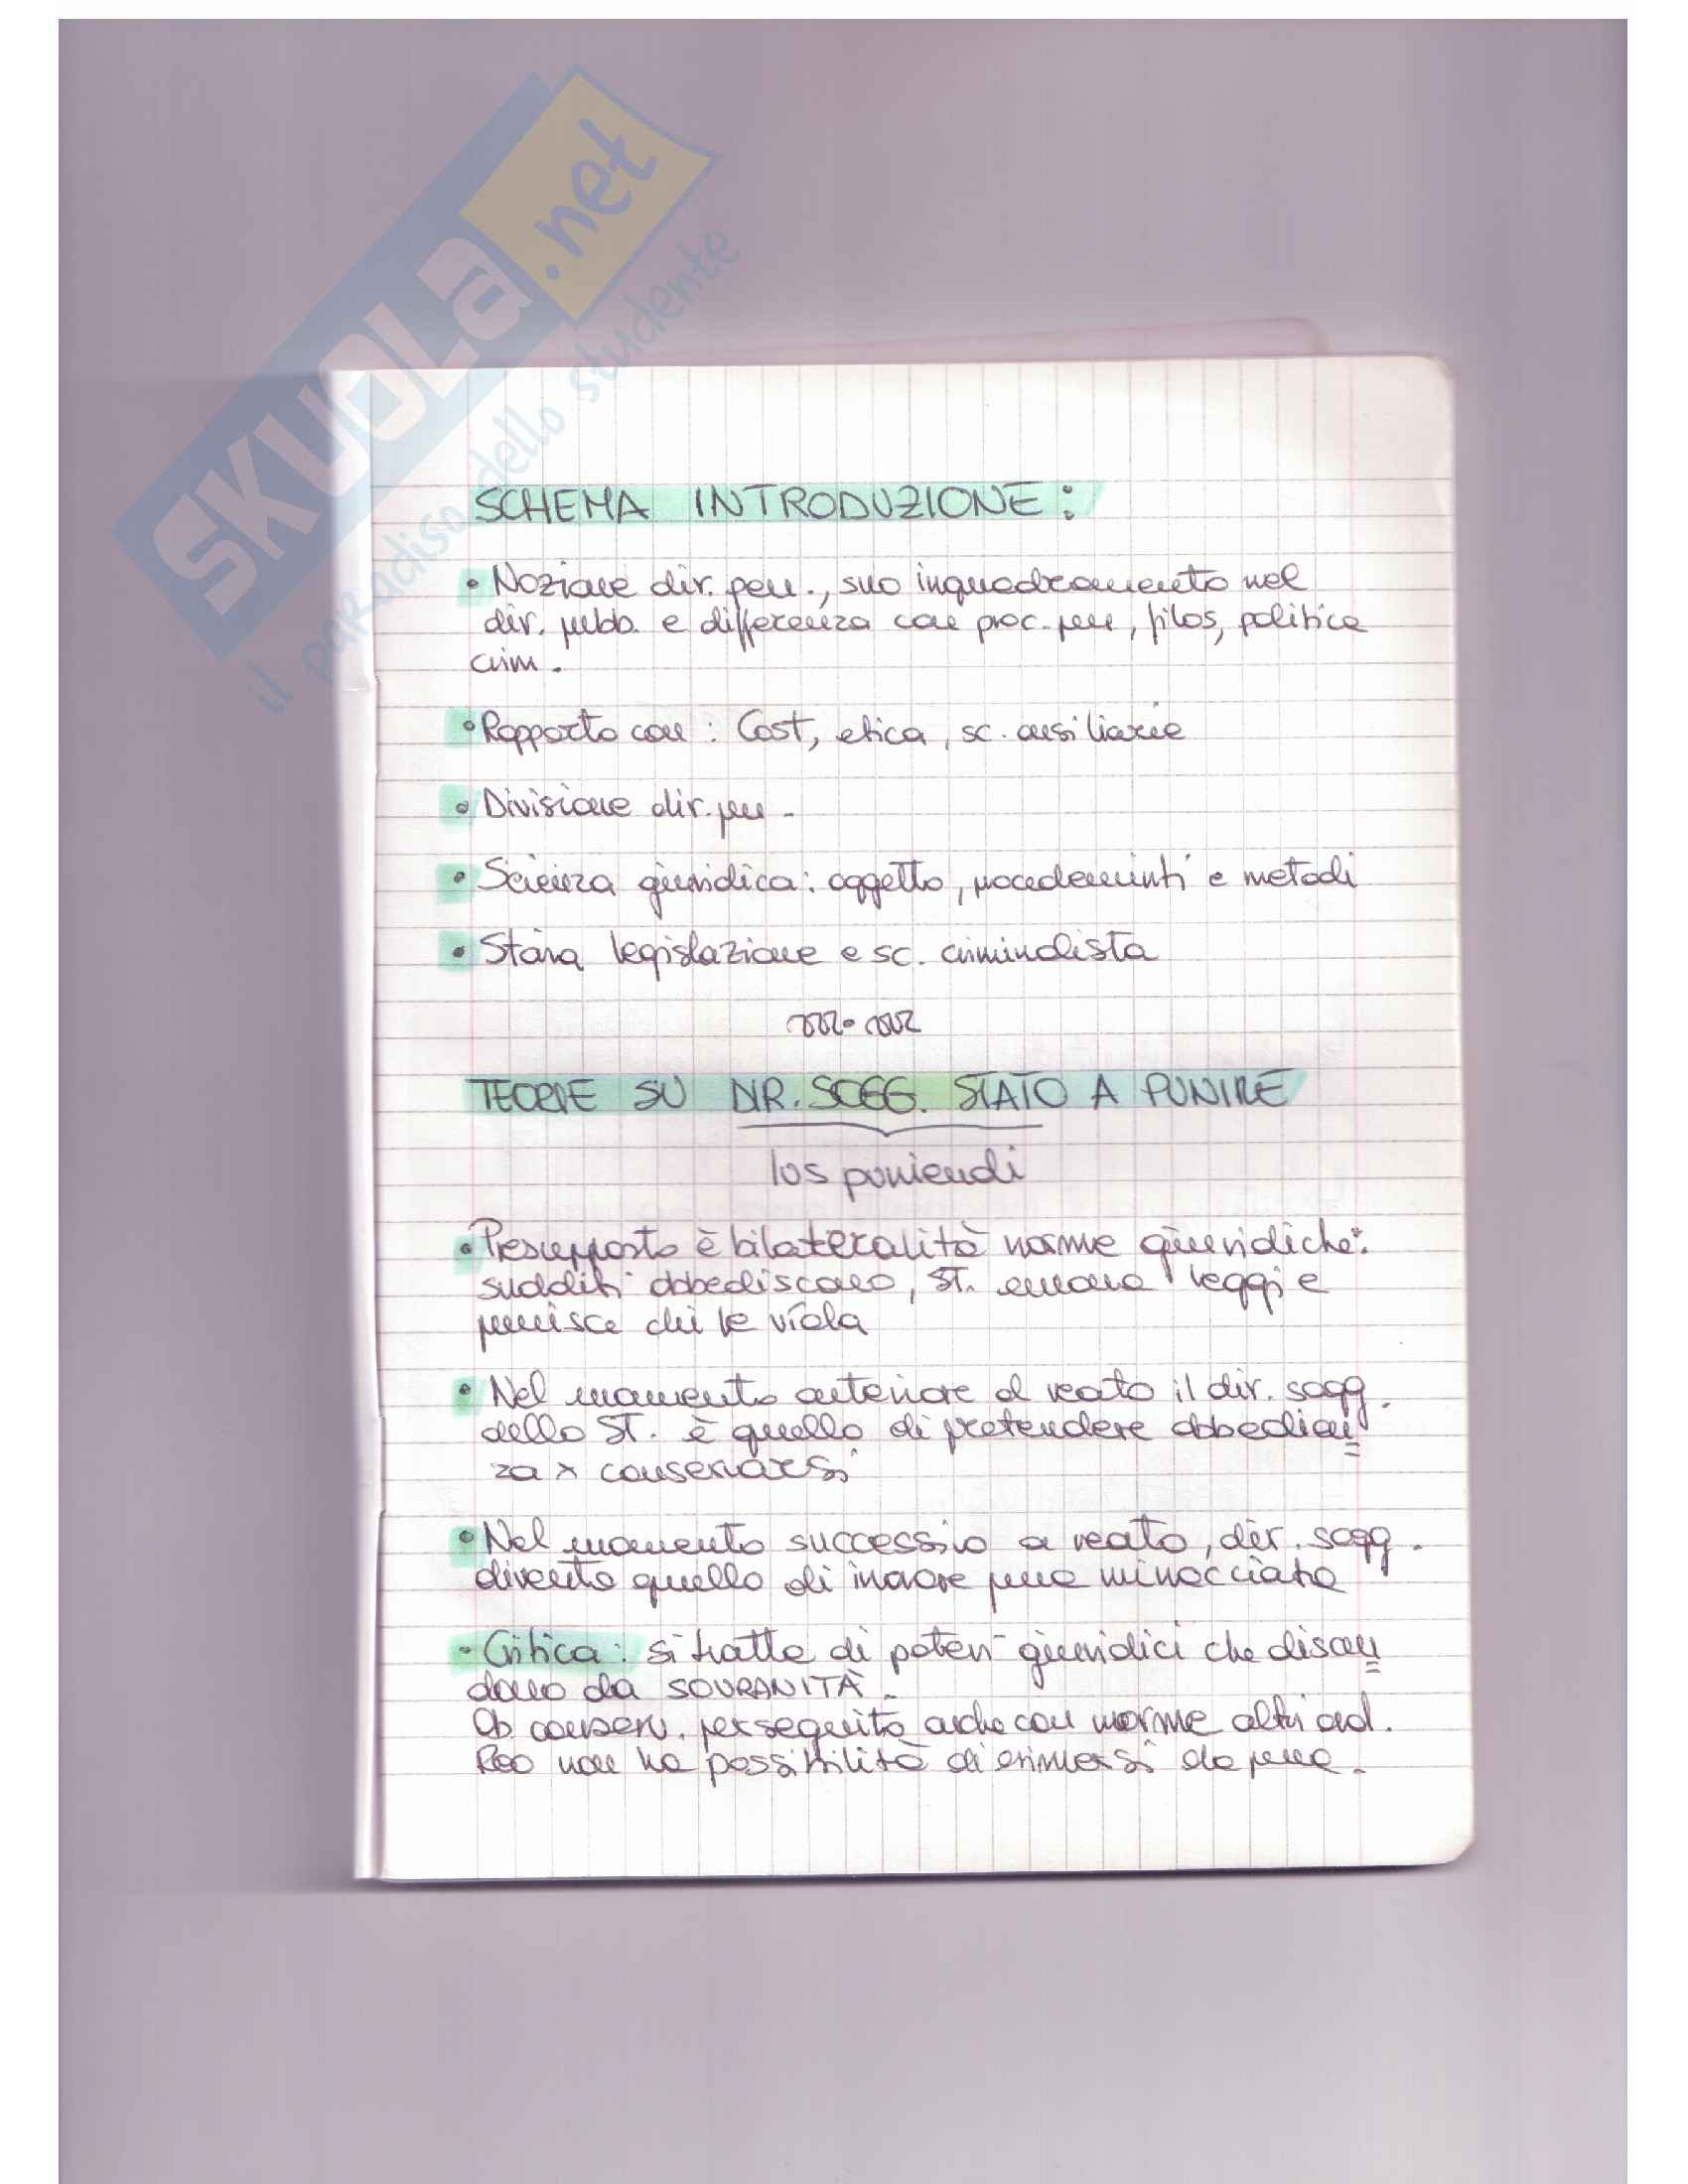 SKUOLA.net
il paradiso dello studente
SCHEMA INTRODUZIONE:
• Nozione dir. pen., suo inquadramento nel
dir. pubb. e differenza con proc. pen, filos, politica
crim.
• Rapporto con: Cost, etica, sc. ausiliarie
• Divisione dir. pen.
• Scienza giuridica: oggetto, procedimenti e metodi
• Storia legislazione e sc. criminalista
TEORIE SU DIR. SOGG. STATO A PUNIRE
Ius puniendi
• Presupposto è bilateralità norme giuridiche:
sudditi obbediscono, ST. emana leggi e
punisce chi le viola
• Nel momento anteriore al reato il dir. sogg.
dello ST. è quello di pretendere obbedien
za x conservarsi
• Nel momento successivo a reato, dir. sogg.
diventa quello di pena minacciata
• Critica: si tratta di poteri giuridici che discen
dono da SOVRANITÀ.
Ob. conserv. perseguito anche con norme altri
Reo non ha possibilità di esimersi da pena.